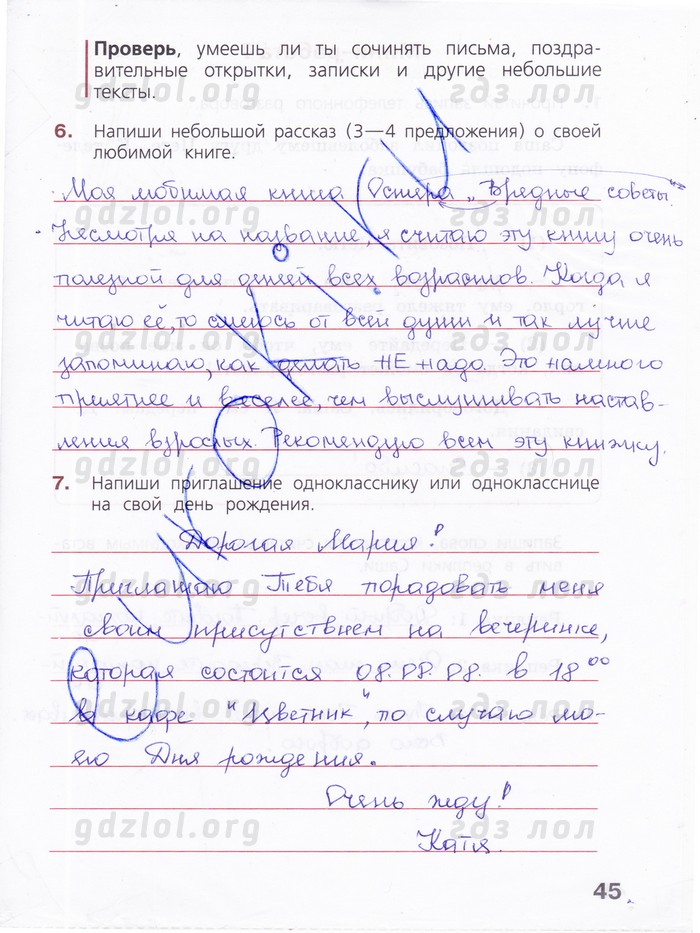 Проверь, умеешь ли ты сочинять письма, поздра-
вительные открытки, записки и другие небольшие
тексты.
6. Напиши небольшой рассказ (3—4 предложения) о своей
любимой книге.
Моя любимая книга Остера „Вредные советы".
Несмотря на название, я считаю эту книгу очень
полезной для детей всех возрастов. Когда я
читаю её, то смеюсь от всей души и так лучше
запоминаю, как делать НЕ надо. Это намного
приятнее и веселее, чем выслушивать настав-
ления взрослых. Рекомендую всем эту книжку.
7. Напиши приглашение однокласснику или однокласснице
на свой день рождения.
Дорогая Мария!
Приглашаю Тебя порадовать меня
своим присутствием на вечеринке,
которая состоится в 18⁰⁰
в кафе "Цветник", по случаю мо-
его Дня рождения.
Очень жду!
Катя.
45
gdzlol.org гдз лол
gdzlol.org гдз лол
gdzlol.org гдз лол
gdzlol.org гдз лол
gdzlol.org гдз лол
gdzlol.org гдз лол
gdzlol.org гдз лол